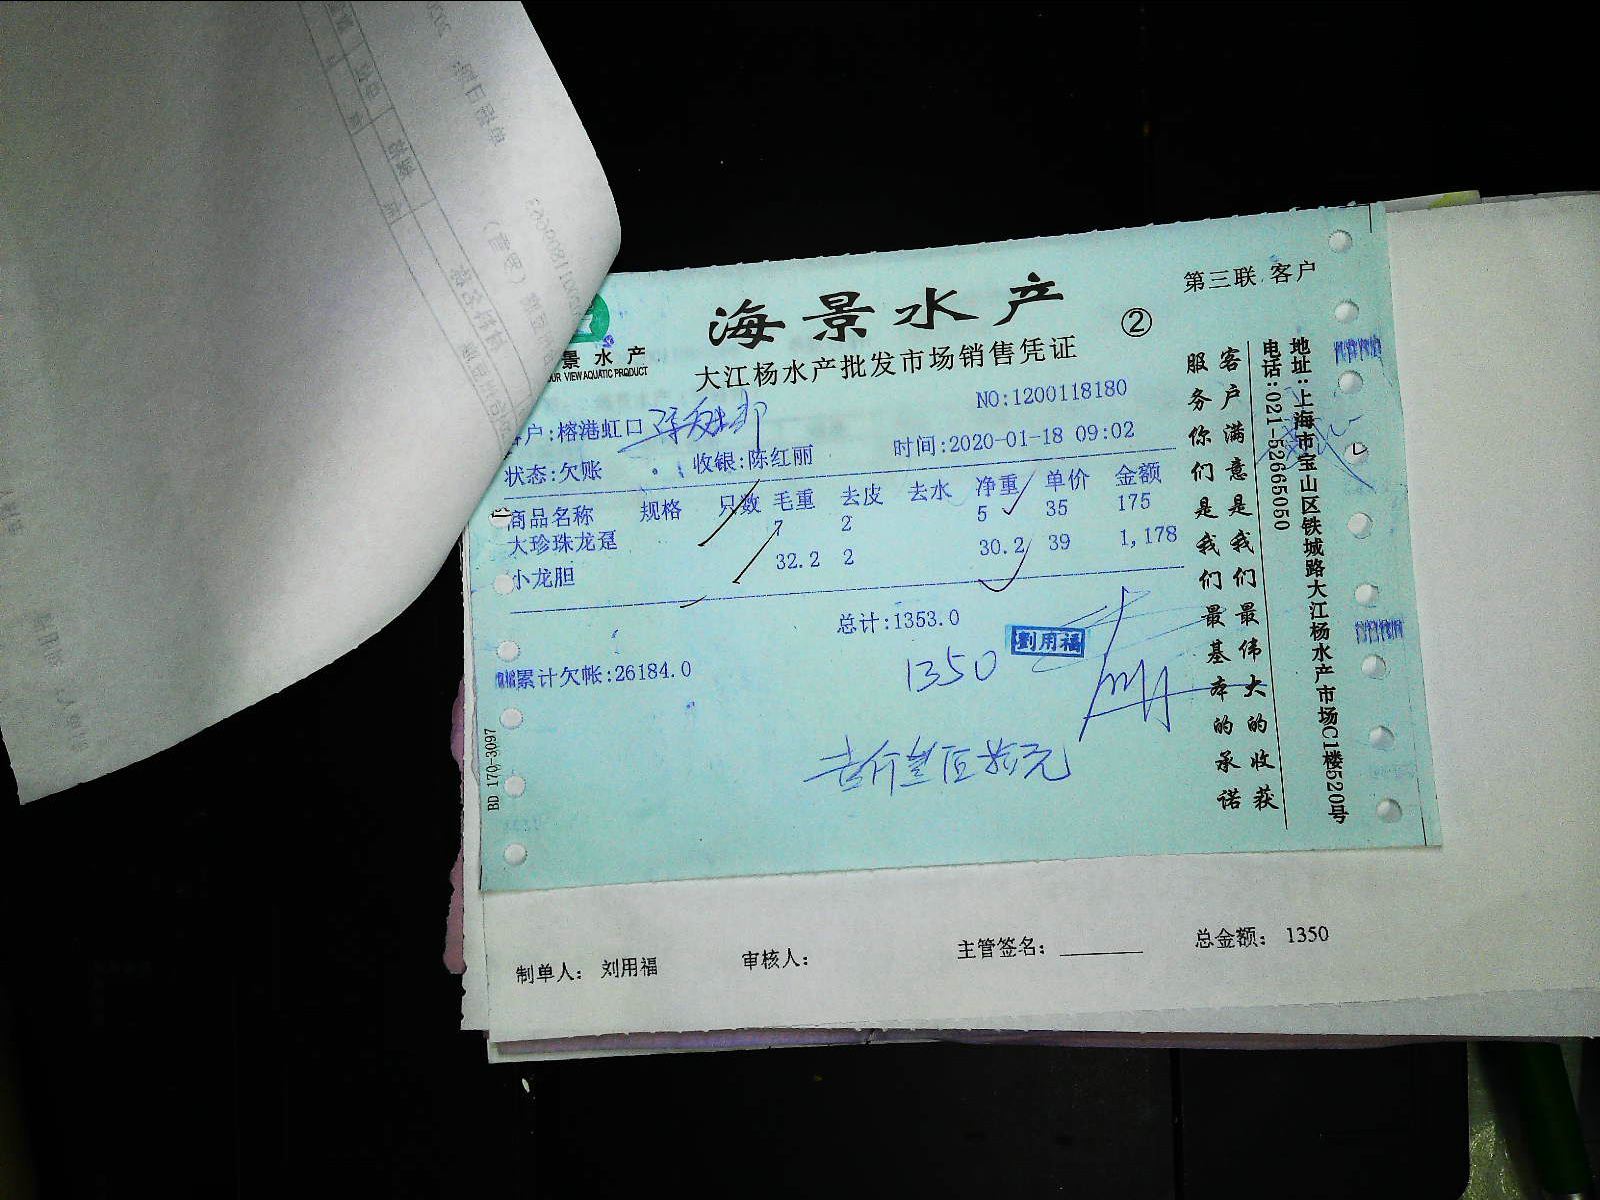 海景水产
第三联 客户
②
景水产
OUR VIEW AQUATIC PRODUCT
大江杨水产批发市场销售凭证
NO:1200118180
户:榕港虹口
时间:2020-01-18 09:02
状态:欠账 收银:陈红丽
商品名称 规格 只数 毛重 去皮 去水 净重 单价 金额
大珍珠龙趸 7 2 5 35 175
小龙胆 32.2 2 30.2 39 1,178
总计:1353.0
劉用福
1350
累计欠帐:26184.0
壹仟叁佰拾元
BD 170-3097
客户满意是我们最伟大的收获
服务你们是我们最基本的承诺
地址:上海市宝山区铁城路大江杨水产市场C1楼520号
电话:021-52665050
制单人: 刘用福 审核人: 主管签名: 总金额: 1350